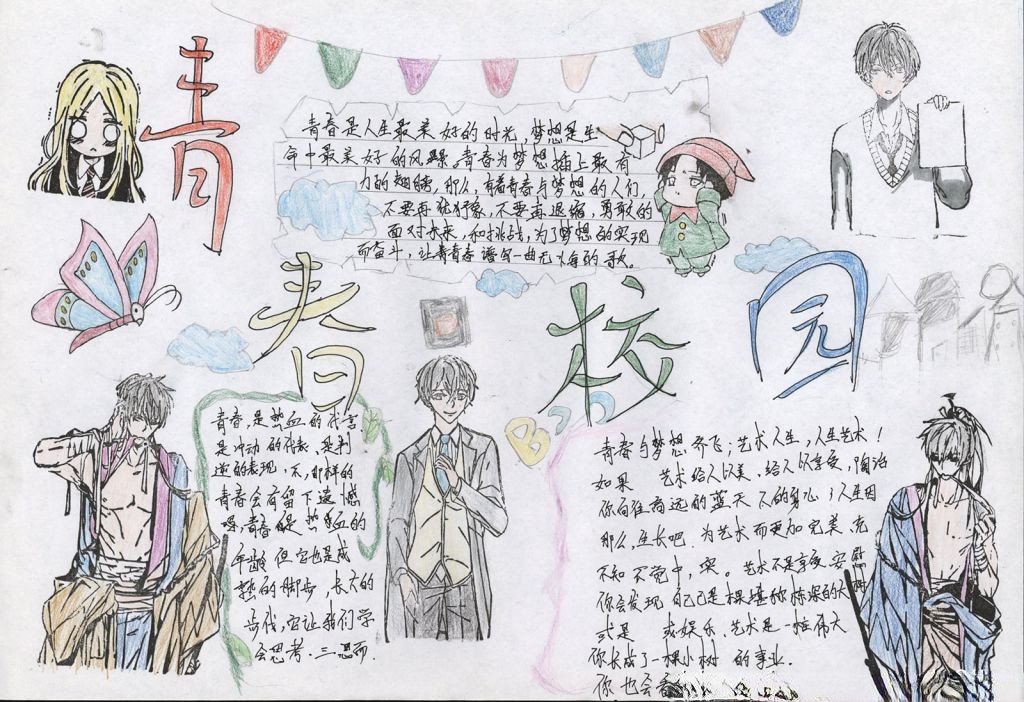 青春校园
青春是人生最美好的时光,梦想是生
命中最美好的风景。青春为梦想插上最有
力的翅膀,那么,有着青春与梦想的人们,
不要再犹犹豫,不要再退缩,勇敢的
面对未来,和挑战,为了梦想的实现
而奋斗,让青青春谱写一曲无悔的歌。
青春,是热血的代言
是冲动的代表,是判
逆的表现,不,那样的
青春会有留下遗憾
青春是热血的
年龄但它也是成
熟的脚步,长大的
步伐,它让我们学
会思考.三思而.
青春与梦想齐飞;艺术人生,人生艺术!
如果 艺术给人以美,给人以享受,陶冶
你向往高远的蓝天 人的身心,人生因
那么,生长吧. 为艺术而更加完美,充
不知不觉中, 实。艺术不是享受,安慰
你会发现 自己已是一棵堪称栋梁的大树
或是 或娱乐,艺术是一桩伟大
你长成了一棵小树 的事业.
你也会看